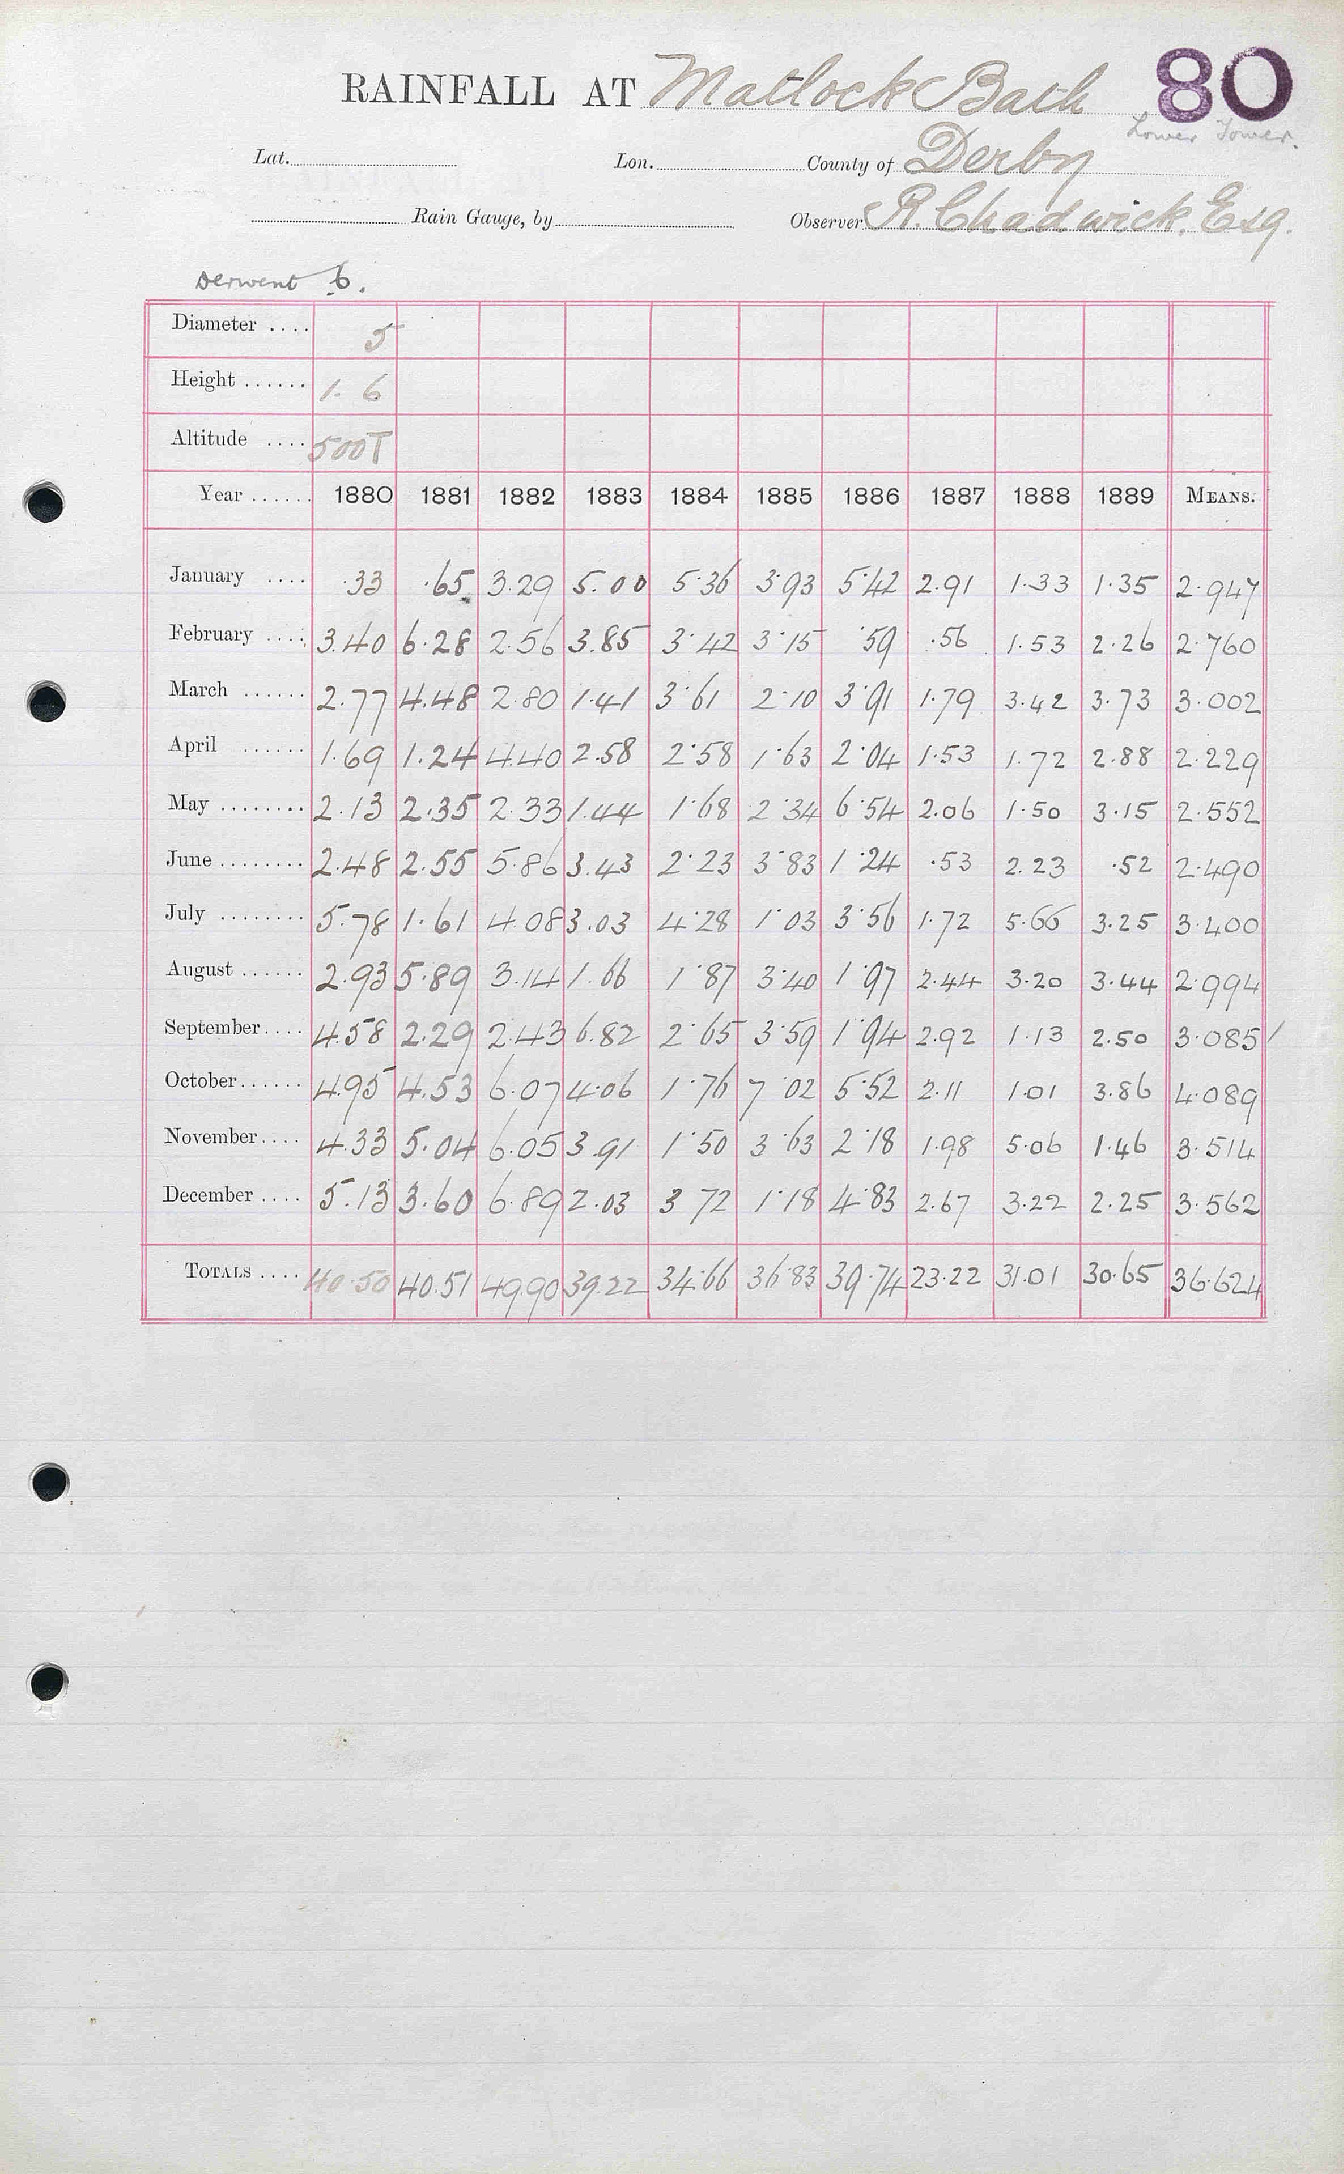 RAINFALL AT Matlock Bath 80
Lower Tower.
Lat. Lon. County of Derby
Rain Gauge, by Observer R. Chadwick. Esq.
Derwent 6.
Diameter .... 5
Height ...... 1. 6
Altitude .... 500T
Year ...... 1880 1881 1882 1883 1884 1885 1886 1887 1888 1889 MEANS.
January .... .33 .65 3.29 5.00 5.36 3.93 5.42 2.91 1.33 1.35 2.947
February .... 3.40 6.28 2.56 3.85 3.42 3.15 .59 .56 1.53 2.26 2.760
March ...... 2.77 4.48 2.80 1.41 3.61 2.10 3.91 1.79 3.42 3.73 3.002
April ...... 1.69 1.24 4.40 2.58 2.58 1.63 2.04 1.53 1.72 2.88 2.229
May ........ 2.13 2.35 2.33 1.44 1.68 2.34 6.54 2.06 1.50 3.15 2.552
June ........ 2.48 2.55 5.86 3.43 2.23 3.83 1.24 .53 2.23 .52 2.490
July ........ 5.78 1.61 4.08 3.03 4.28 1.03 3.56 1.72 5.66 3.25 3.400
August ...... 2.93 5.89 3.14 1.66 1.87 3.40 1.97 2.44 3.20 3.44 2.994
September .... 4.58 2.29 2.43 6.82 2.65 3.59 1.94 2.92 1.13 2.50 3.085 /
October ...... 4.95 4.53 6.07 4.06 1.76 7.02 5.52 2.11 1.01 3.86 4.089
November .... 4.33 5.04 6.05 3.91 1.50 3.63 2.18 1.98 5.06 1.46 3.514
December .... 5.13 3.60 6.89 2.03 3.72 1.18 4.83 2.67 3.22 2.25 3.562
TOTALS .... 40.50 40.51 49.90 39.22 34.66 36.83 39.74 23.22 31.01 30.65 36.624